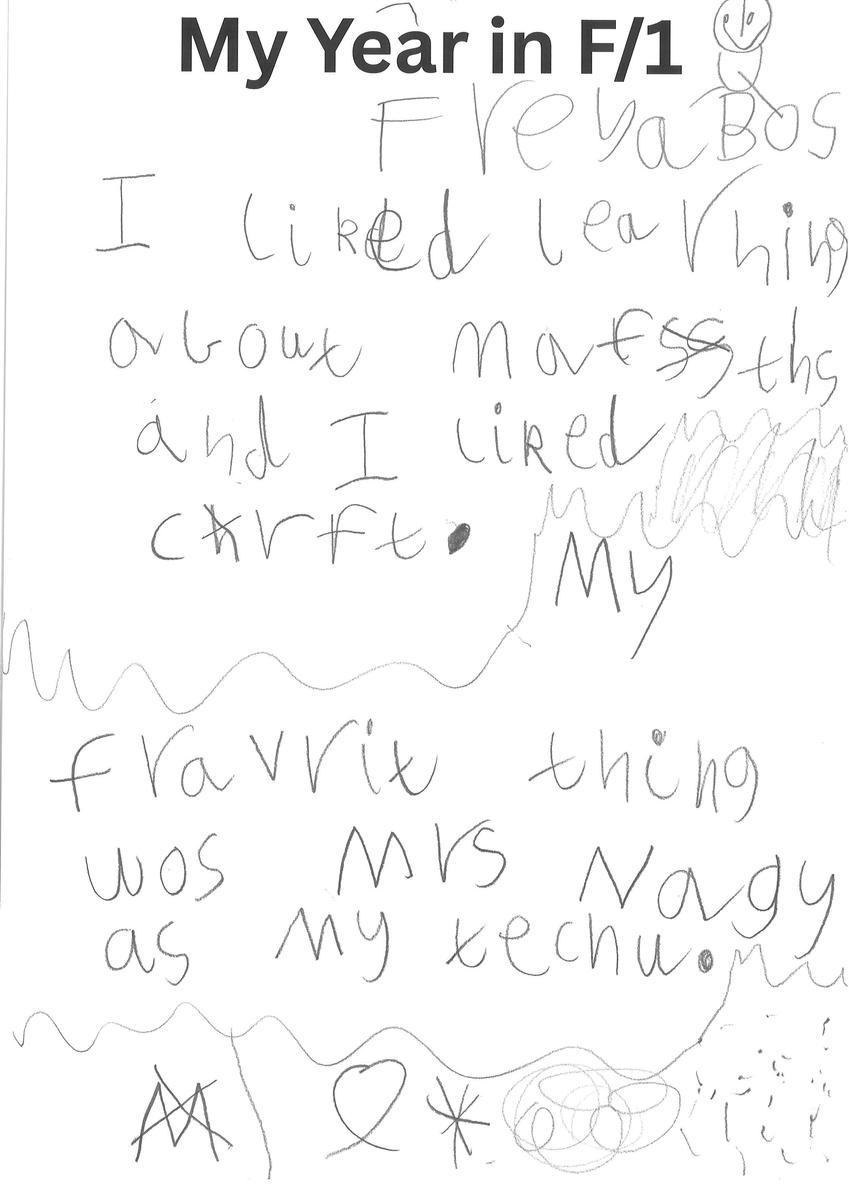 My Year in F/1
Freya Bos
I liked learning
about mathsths
and I liked
chrft.
My
fravrit thing
wos Mrs Nagy
as my techu.